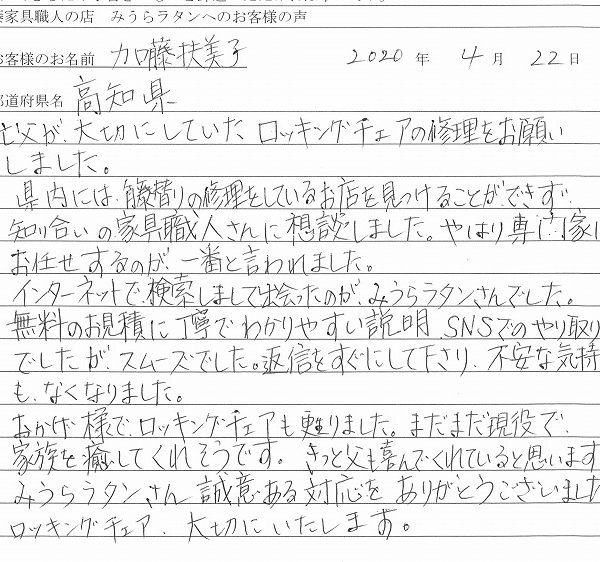 家具職人の店 みうらラタンへのお客様の声
お客様のお名前 加藤扶美子 2020年 4月 22日
都道府県名 高知県
亡父が、大切にしていた ロッキングチェアの修理をお願い
しました。
県内には、籐替りの修理をしているお店を見つけることができず、
知り合いの家具職人さんに想談しました。やはり専門家に
お任せするのが、一番と言われました。
インターネットで、検索しまして出会ったのが、みうらラタンさんでした。
無料のお見積に丁寧でわかりやすい説明、SNSでのやり取り
でしたが、スムーズでした。返信をすぐにして下さり、不安な気持
も、なくなりました。
おかげ様で、ロッキングチェアも甦りました。まだまだ現役で、
家族を癒してくれそうです。きっと父も喜んでくれていると思います
みうらラタンさん 誠意ある対応を ありがとうございました
ロッキングチェア、大切にいたします。